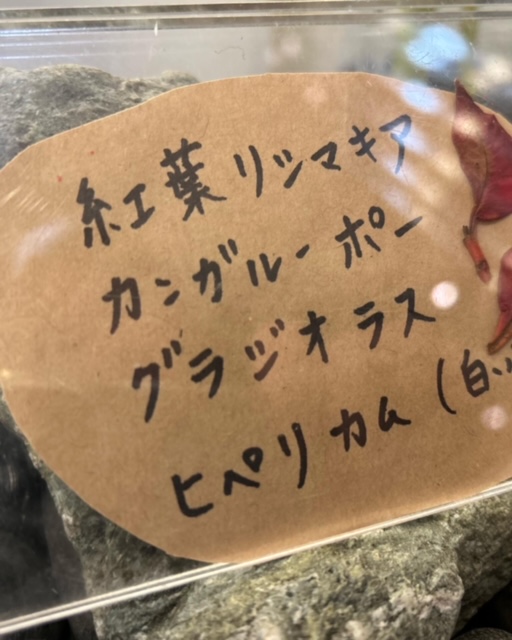 紅葉リシマキア
カンガルーポー
グラジオラス
ヒペリカム(白い